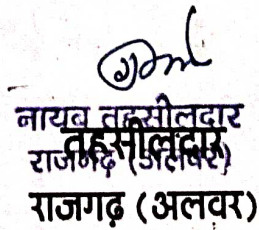 नायब तहसीलदार
तहसीलदार
राजगढ़ (अलवर)
राजगढ़ (अलवर)